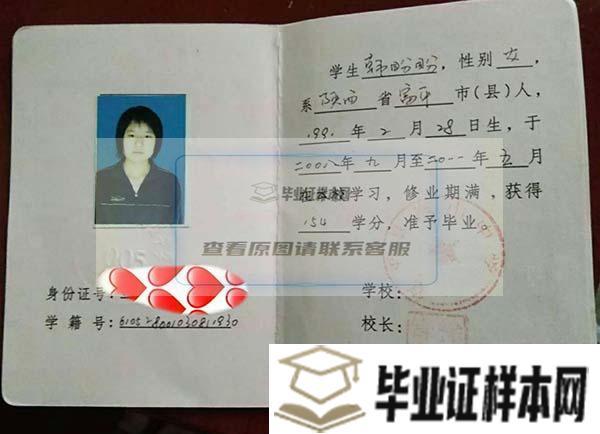 学生韩盼盼，性别女，
系陕西省富平市(县)人，
1991年2月28日生，于
二00八年九月至二0一一年五月
在本校学习，修业期满，获得
154学分，准予毕业。
学校：
校长：
身份证号：
学籍号：610528001030811930
毕业证样本网
查看原图请联系客服
005
毕业证样本网